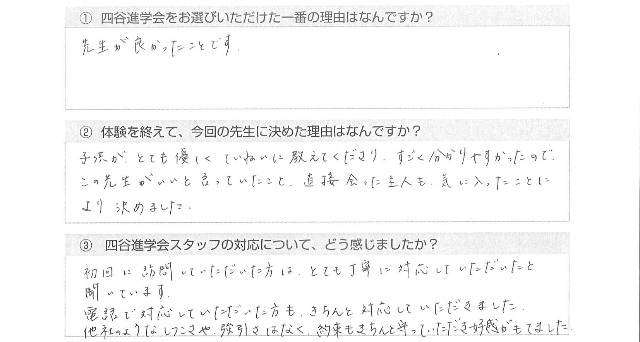 ① 四谷進学会をお選びいただけた一番の理由はなんですか？
先生が良かったことです.
② 体験を終えて、今回の先生に決めた理由はなんですか？
子供が とても優しく ていねいに教えてくださり. すごく分かりやすかったので.
この先生がいいと言っていたこと. 直接会った主人も. 気に入ったことに
より 決めました.
③ 四谷進学会スタッフの対応について、どう感じましたか？
初回に訪問していただいた方は. とても丁寧に対応していただいたと
聞いています.
電話で対応していただいた方も. きちんと対応していただきました.
他社のようなしつこさや. 強引さはなく. 約束もきちんと守っていただき好感がもてました.